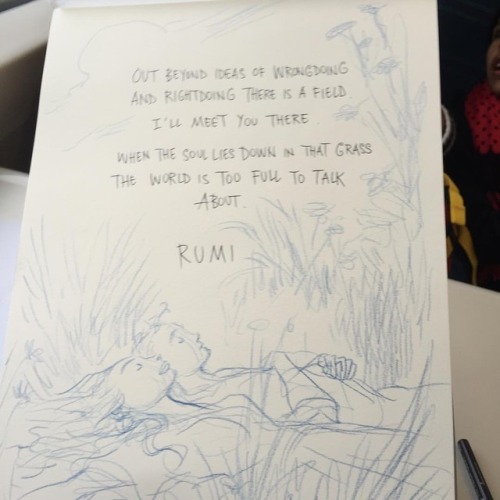 OUT BEYOND IDEAS OF WRONGDOING
AND RIGHTDOING THERE IS A FIELD.
I'LL MEET YOU THERE.
WHEN THE SOUL LIES DOWN IN THAT GRASS
THE WORLD IS TOO FULL TO TALK
ABOUT.
RUMI